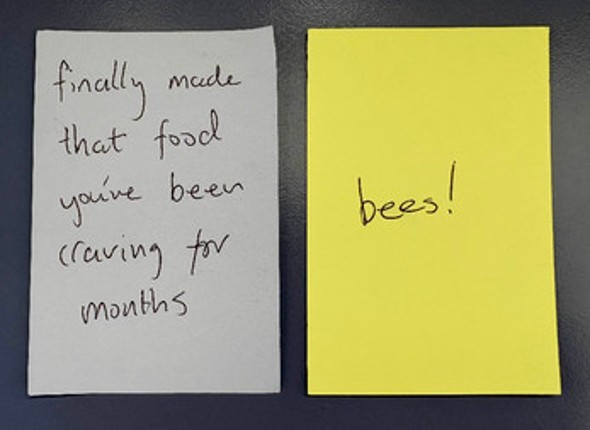 finally made
that food
you've been
craving for
months
bees!